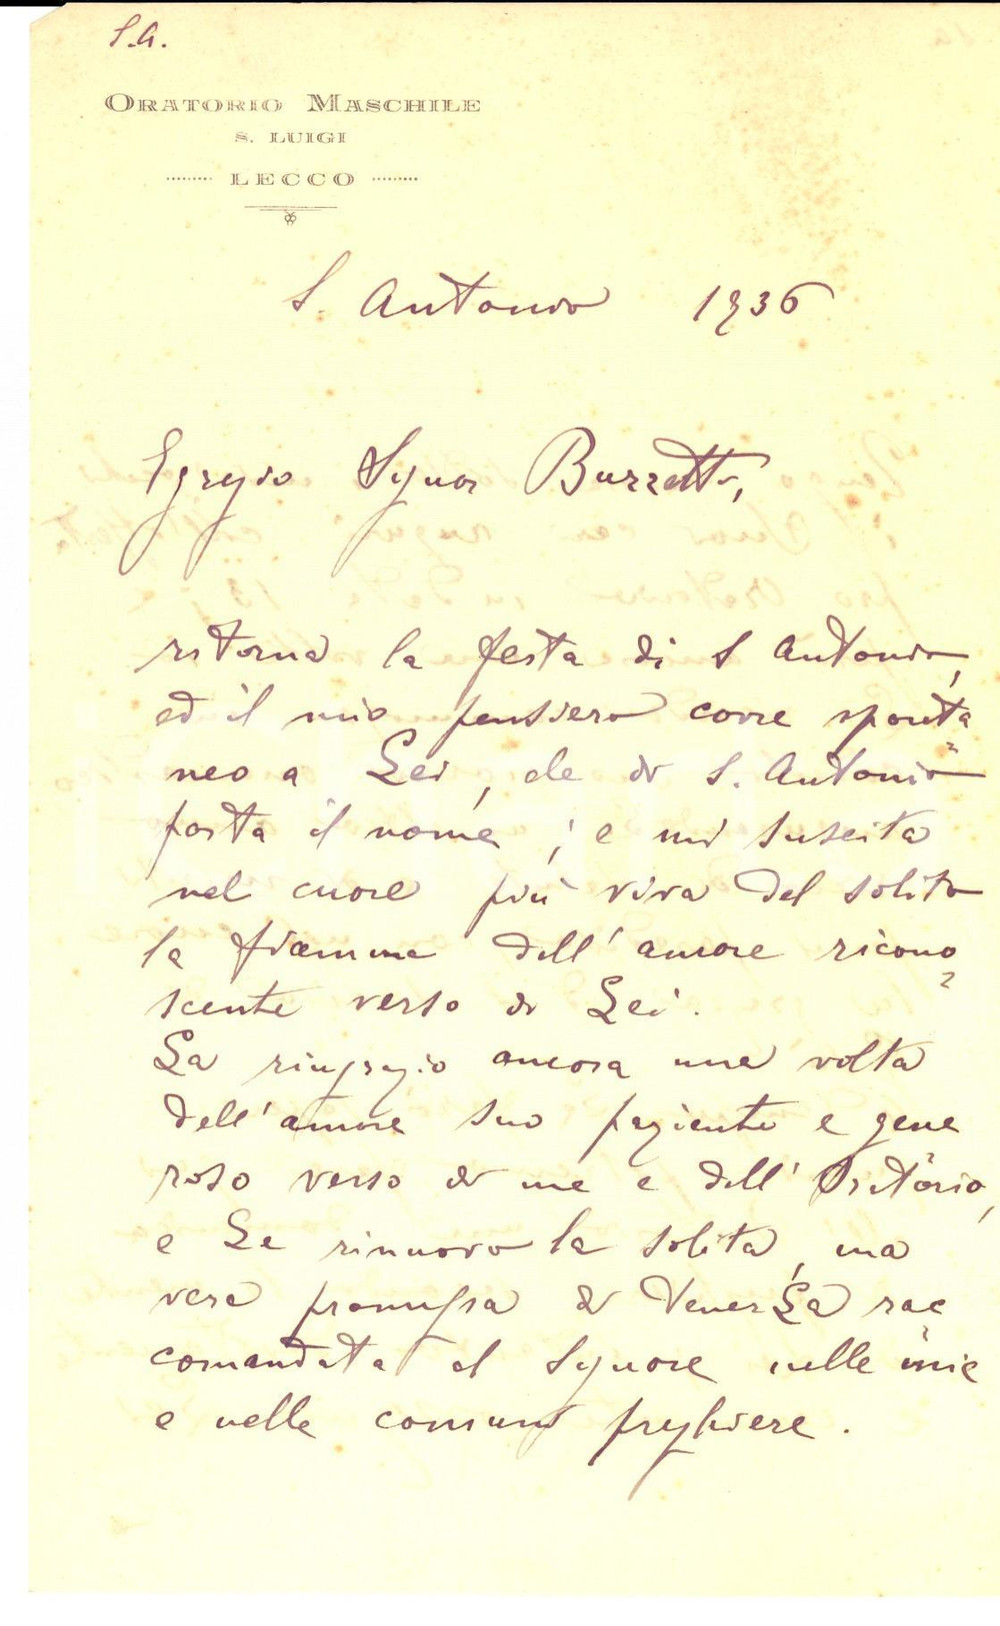 S.A.
ORATORIO MASCHILE
S. LUIGI
LECCO
S. Antonio 1936
Egregio Signor Buzzetti,
ritorna la festa di S Antonio,
ed il mio pensiero corre sponta
neo a Lei, che di S. Antonio
porta il nome; e mi suscita
nel cuore più viva del solito
la fiamma dell'amore ricono
scente verso di Lei.
La ringrazio ancora una volta
dell'amore suo paziente e gene
roso verso di me e dell'Oratorio,
e Le rinnovo la solita, ma
vera promessa di tenerLa rac
comandata al Signore nelle mie
e nelle comuni preghiere.